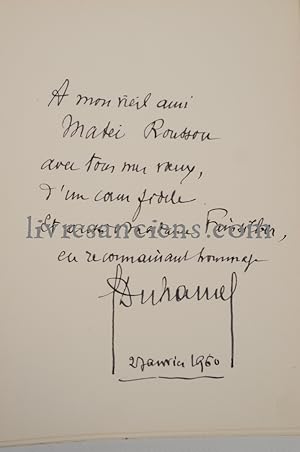 A mon vieil ami
Matei Roussou
avec tous mes vœux,
d'un cœur fidèle.
Et aussi
livresanciens.com
en reconnaissant hommage
GDuhamel
2 Janvier 1960